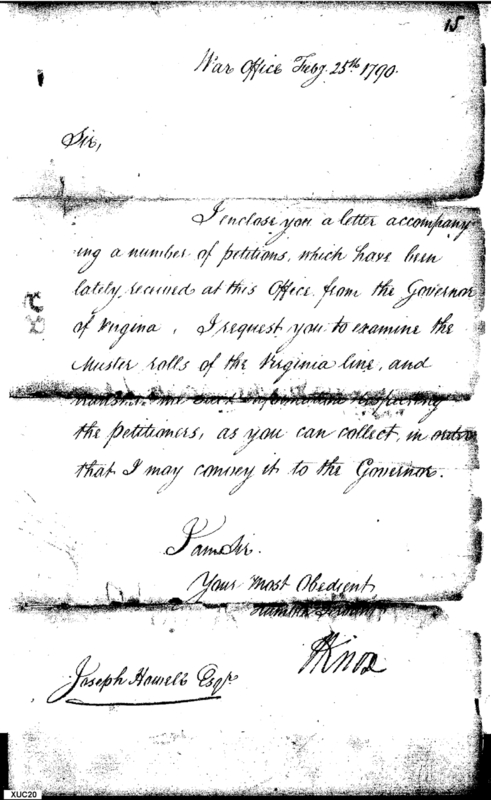 15
War Office Feby. 25th 1790.
Sir,
I enclose you a letter accompany-
ing a number of petitions, which have been
lately received at this Office from the Governor
of Virgina. I request you to examine the
Muster rolls of the Virginia line, and
transmit me such information respecting
the petitioners, as you can collect, in order
that I may convey it to the Governor.
I am Sir.
Your Most Obedient
Humble Servant
HKnox
Joseph Howell Esqr.
XUC20